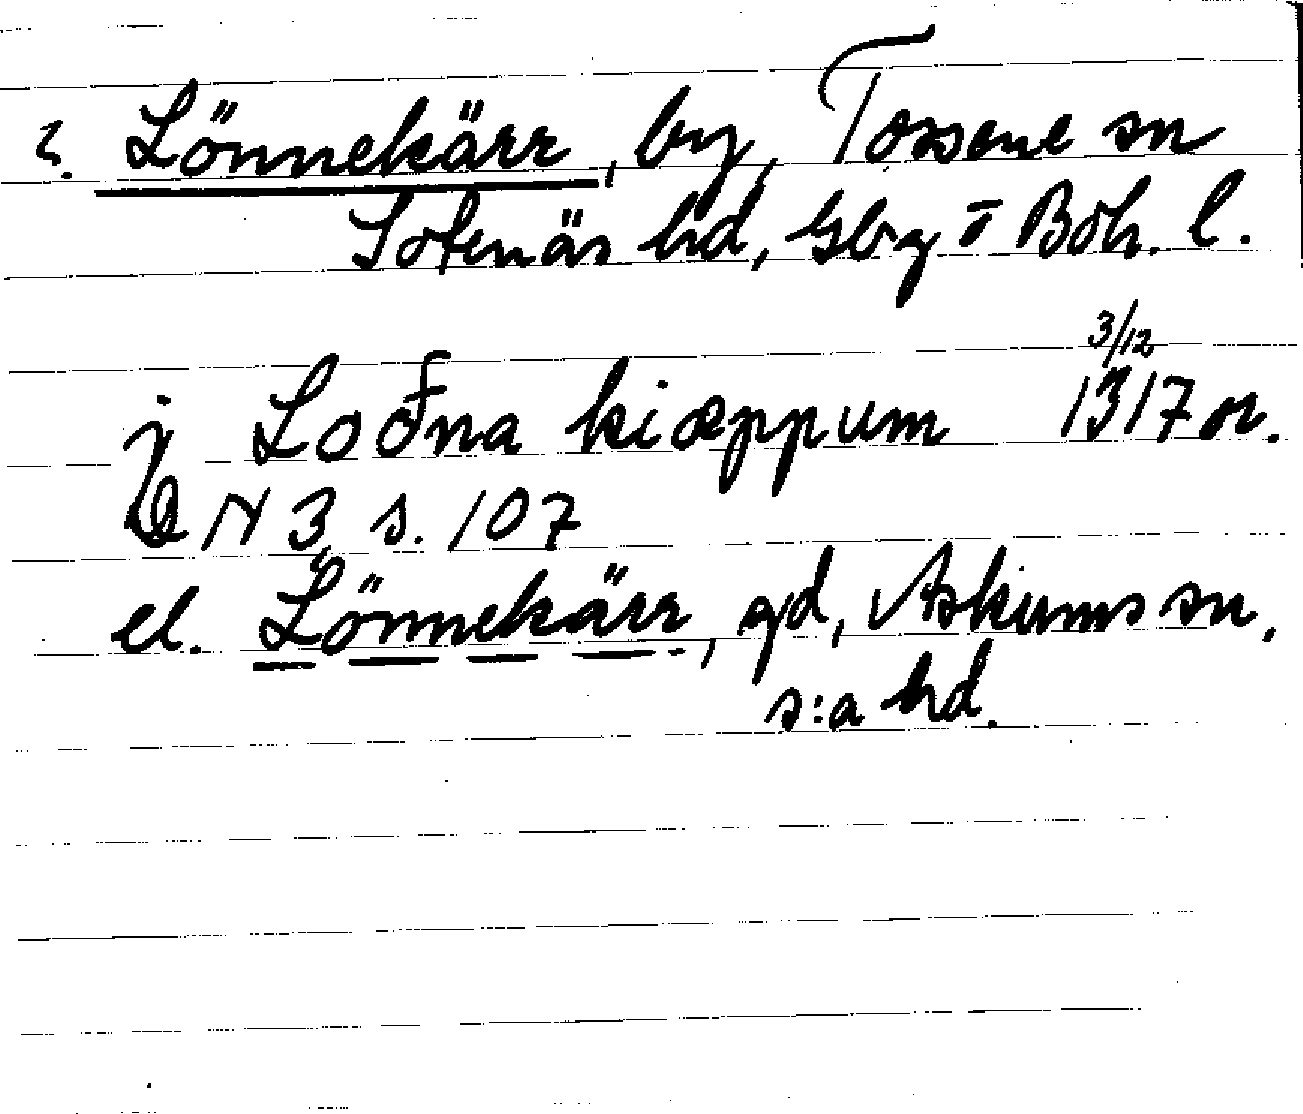 ?. Lönnekärr, by, Tossene sn
Sotenäs hd, Gbg o Boh. l.
3/12
j Loðna kiæppum 1317 or.
DN 3 s. 107
el. Lönnekärr, gd, Askums sn,
s:a hd.